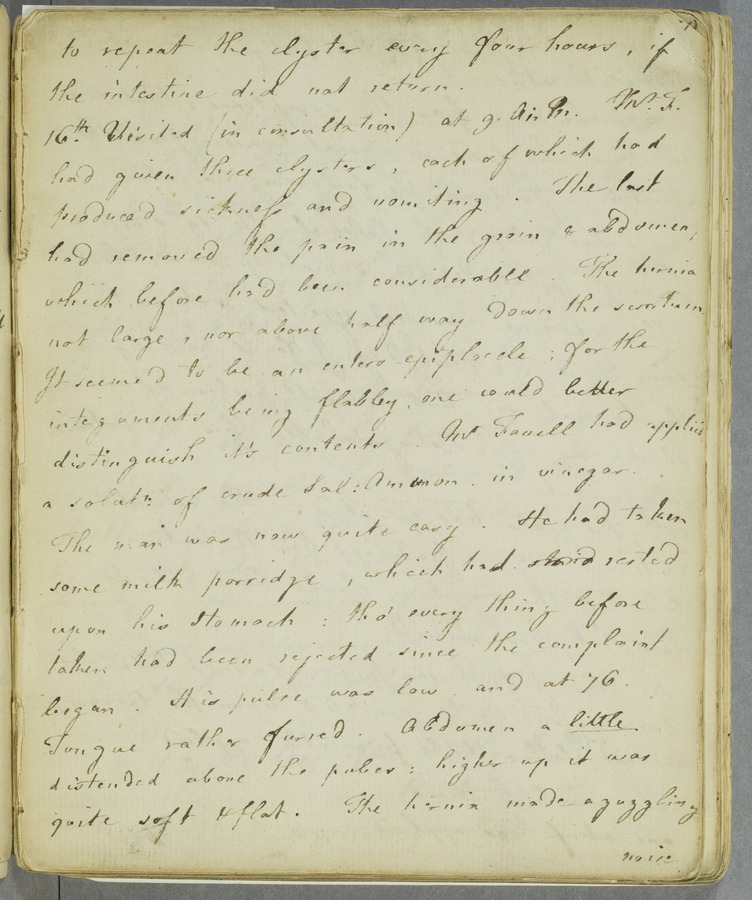 to repeat the clyster every four hours, if
the intestine did not return.
16th. Visited (in consultation) at 9. A.M. Mr. F.
had given three clysters, each of which had
produced sickness and vomiting. The last
had removed the pain in the groin & abdomen,
which before had been considerable. The hernia
not large, nor above half way down the scrotum
It seemed to be an entero epiplocele; for the
integuments being flabby, one could better
distinguish it's contents. Mr. Favell had applied
a solutn. of crude Sal: Ammon. in vinegar.
The man was now quite easy. He had taken
some milk porridge, which had rested
upon his stomach: tho' every thing before
taken had been rejected since the complaint
began. His pulse was low and at 76.
Tongue rather furred. Abdomen a little
distended above the pubes: higher up it was
quite soft & flat. The hernia made a guggling
noise